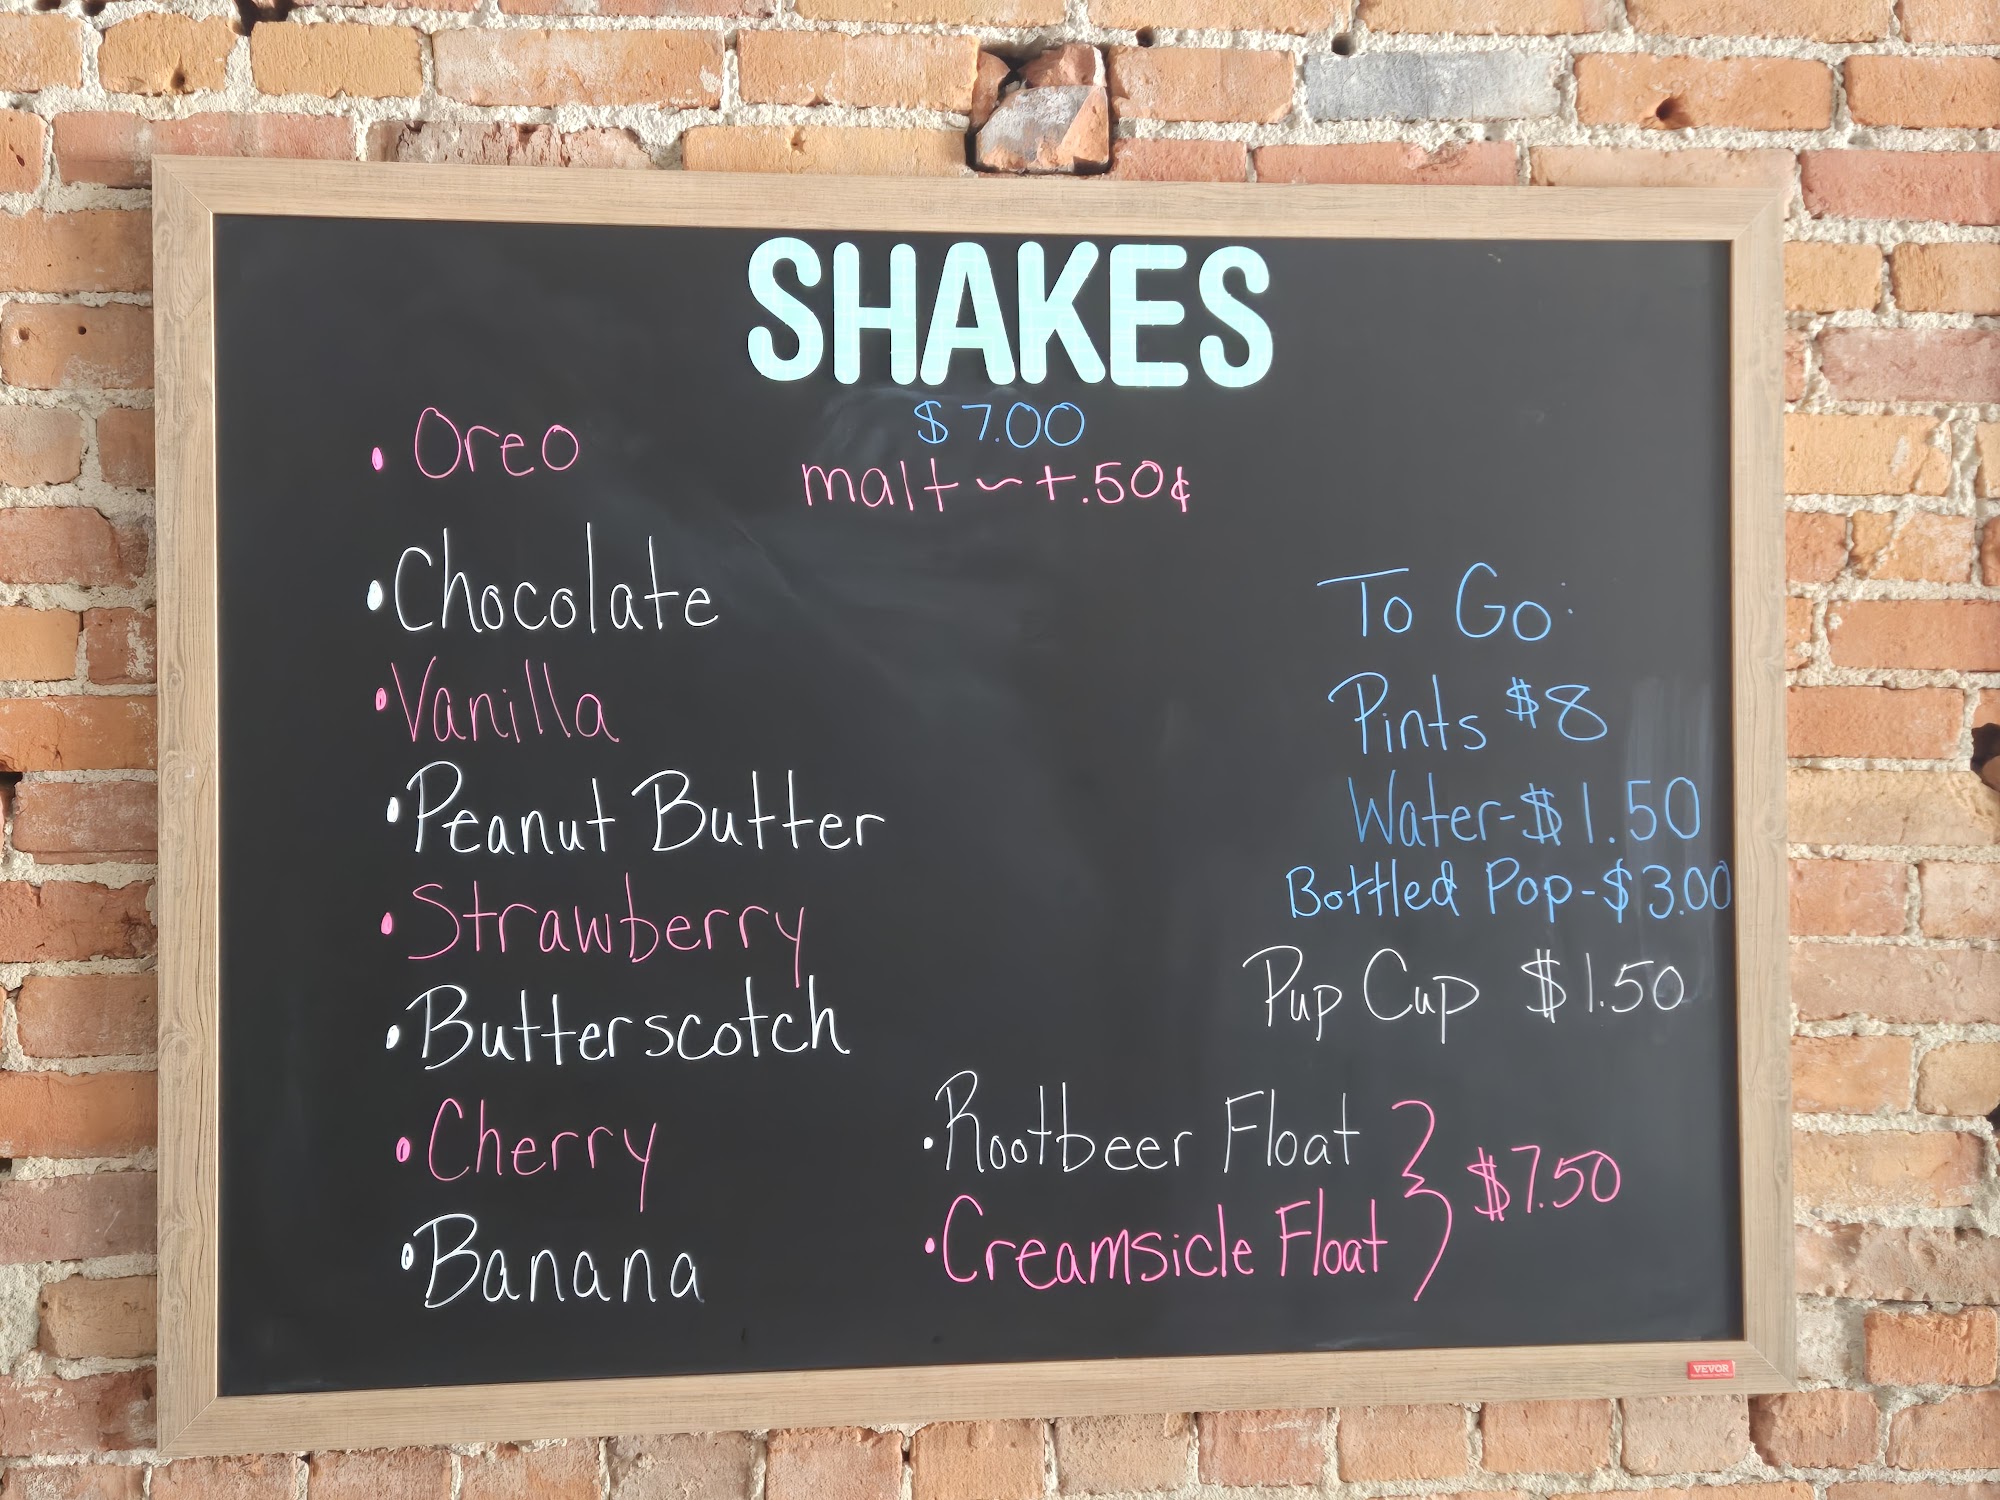 SHAKES
$7.00
malt ~ +.50¢
• Oreo
• Chocolate
• Vanilla
• Peanut Butter
• Strawberry
• Butterscotch
• Cherry
• Banana
To Go:
Pints $8
Water-$1.50
Bottled Pop-$3.00
Pup Cup $1.50
• Rootbeer Float
• Creamsicle Float } $7.50
VEVOR